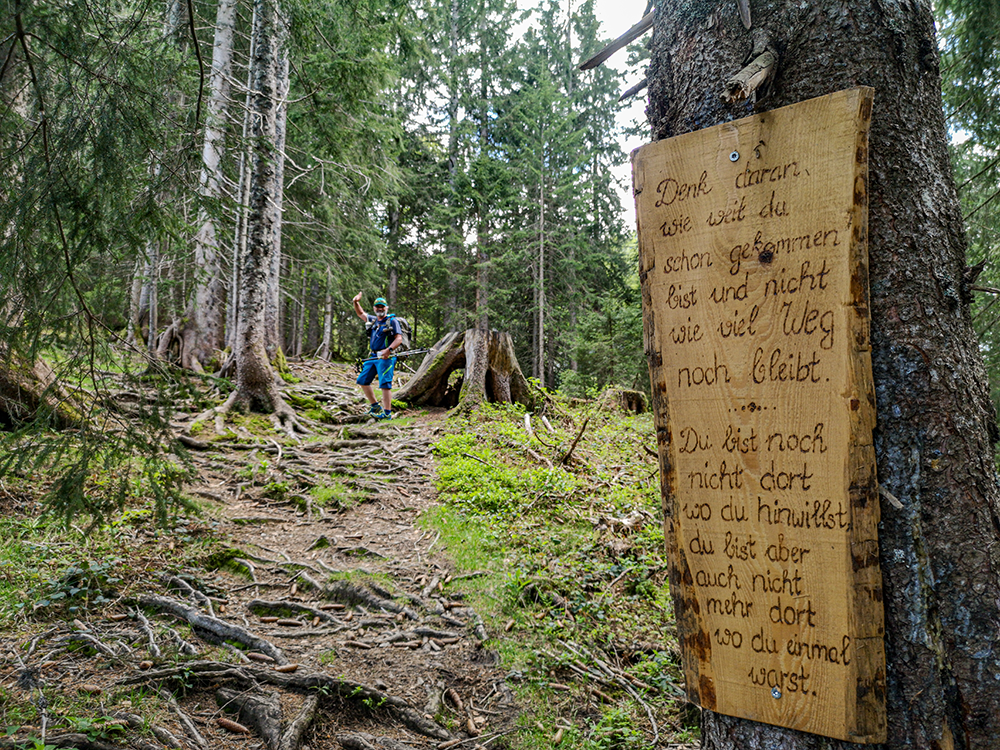 Denk daran,
wie weit du
schon gekommen
bist und nicht
wie viel Weg
noch bleibt.
Du bist noch
nicht dort
wo du hinwillst,
du bist aber
auch nicht
mehr dort
wo du einmal
warst.